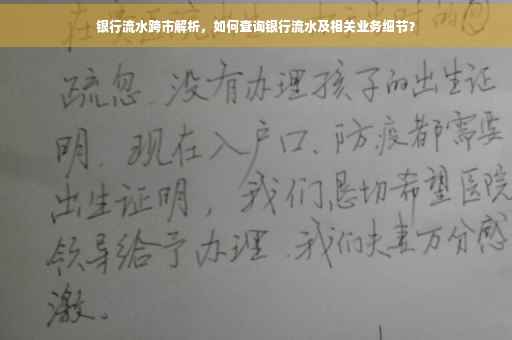 银行流水跨市解析，如何查询银行流水及相关业务细节？
疏忽.没有办理孩子的出生证
明.现在入户口、防疫都需要
出生证明，我们恳切希望医院
领导给予办理.我们夫妻万分感
激。